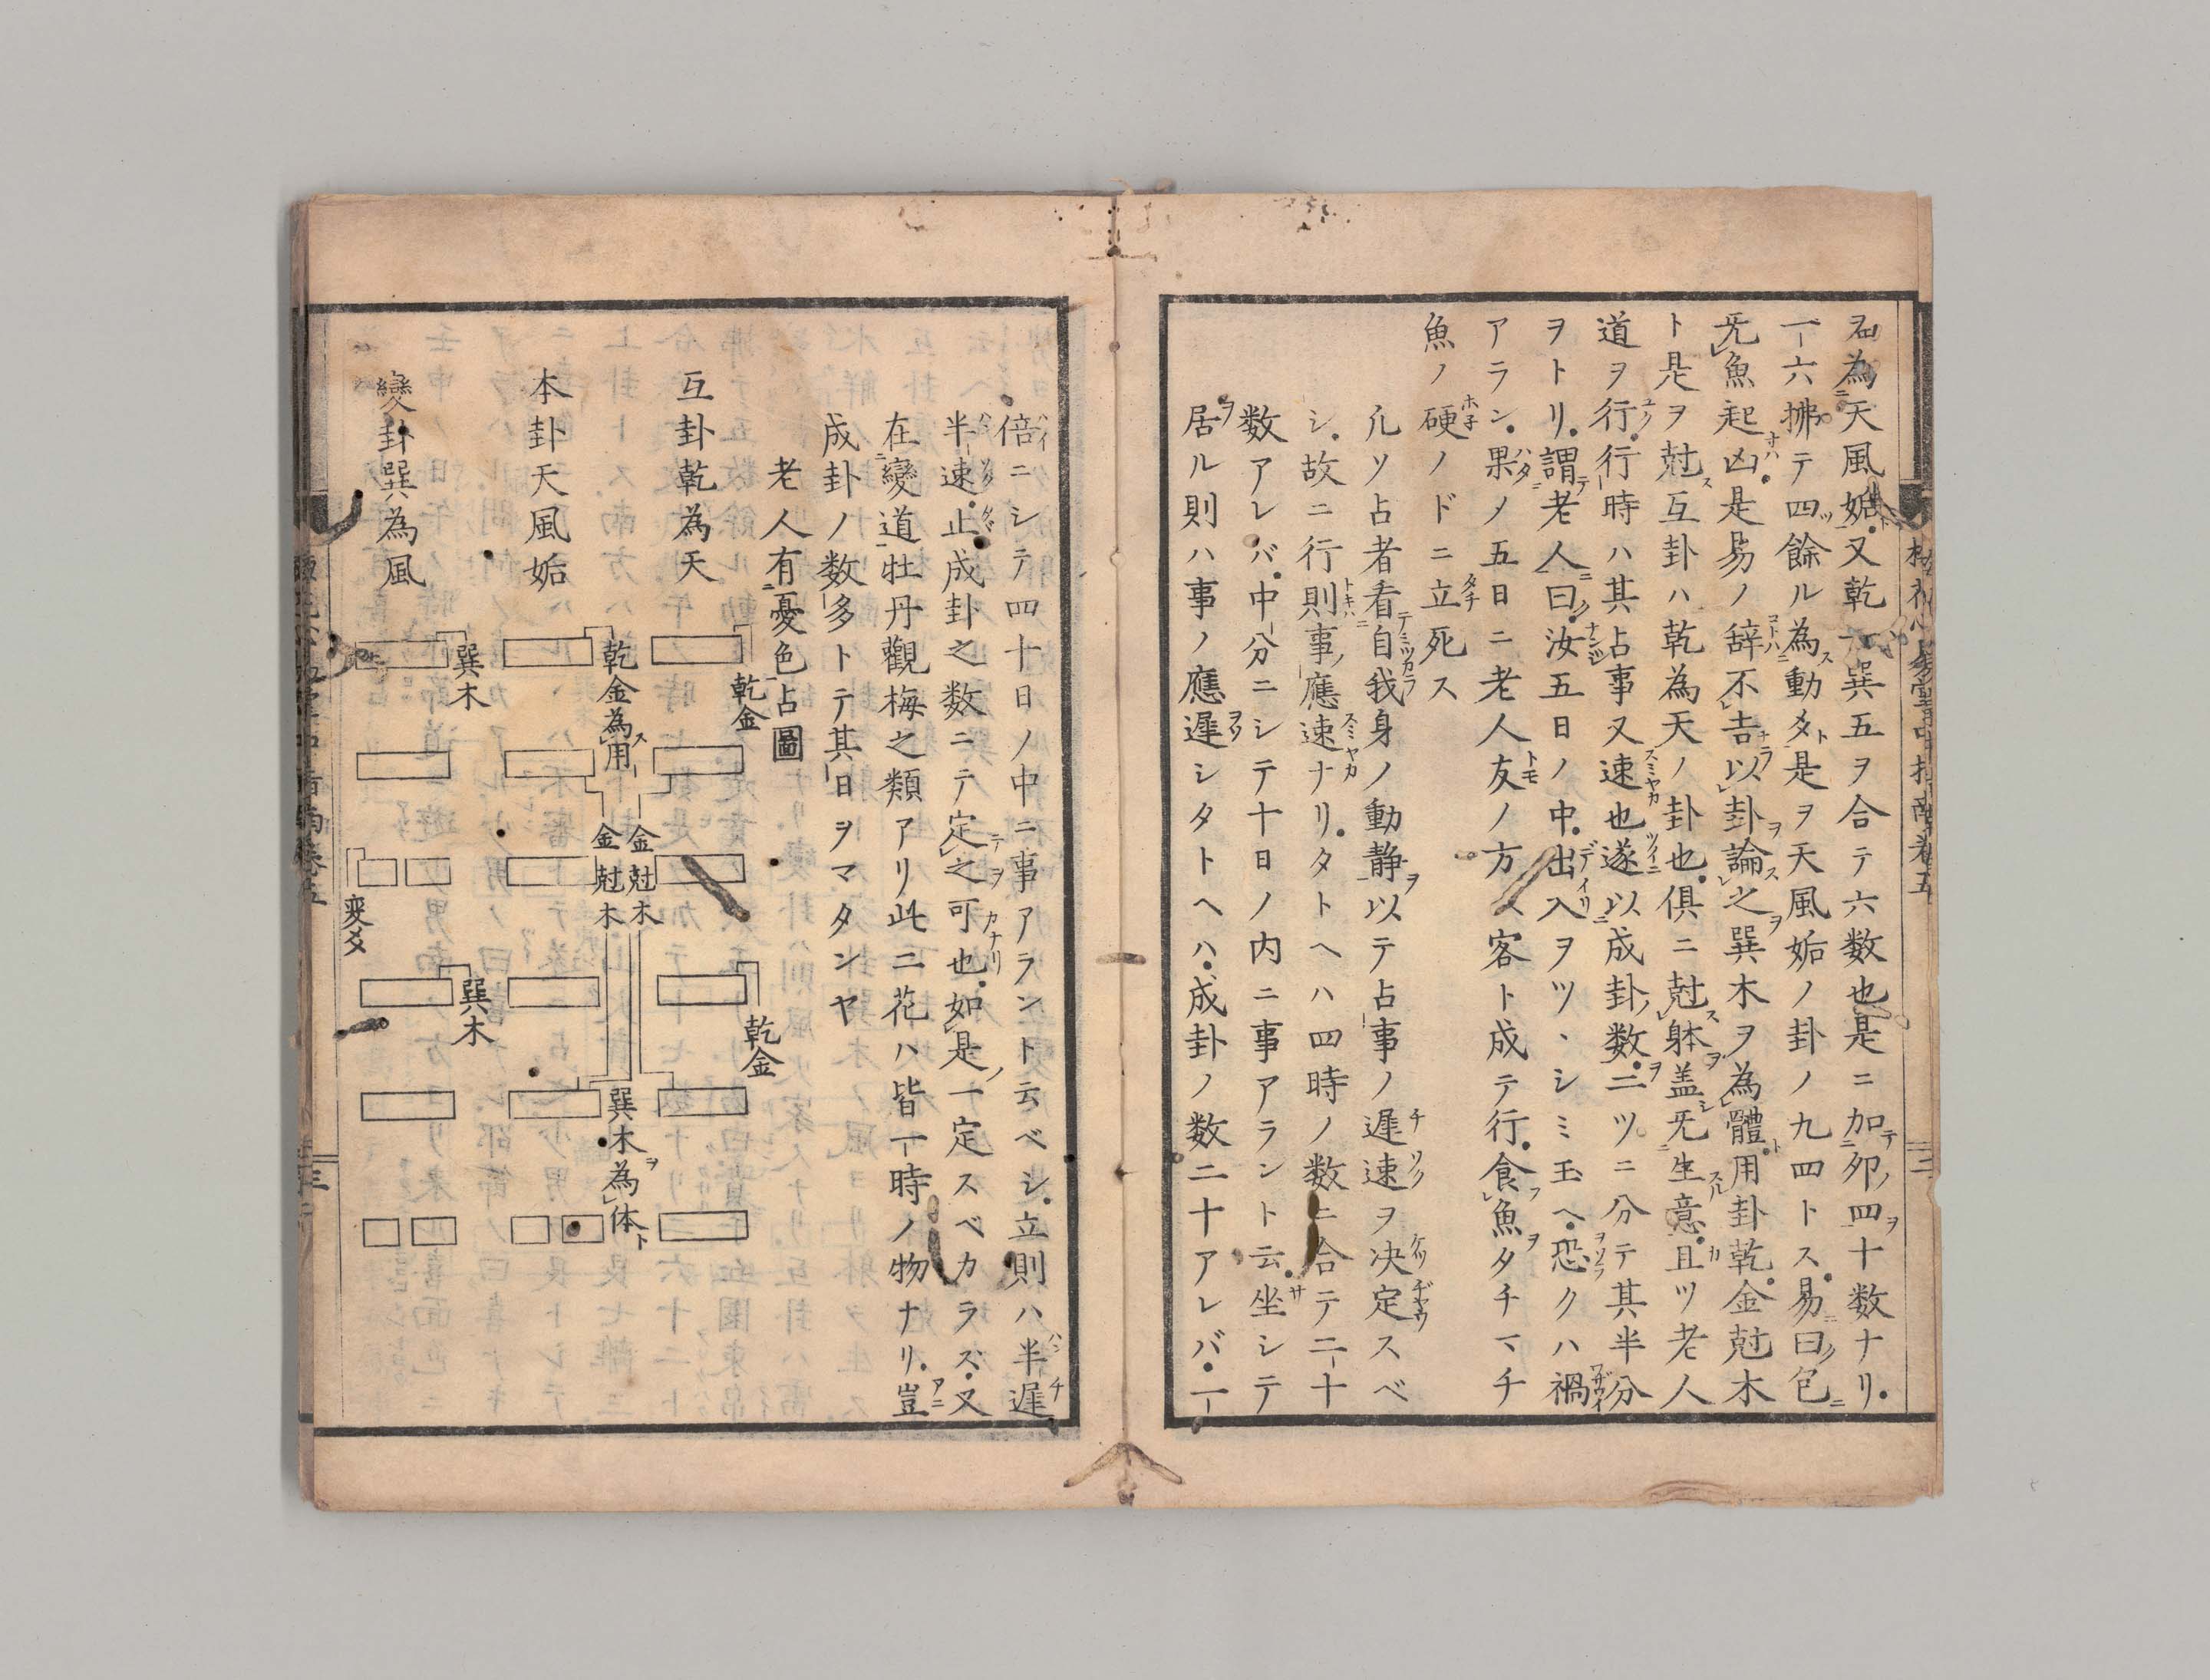 為天風姤又乾一巽五ヲ合テ六数也是ニ加卯四十数ナリ
一六拂テ四餘ル為動爻是ヲ天風姤ノ卦ノ九四トス易曰包
无魚起凶是易ノ辞不吉以卦論之巽木ヲ為體用卦乾金尅木
ト是ヲ尅互卦ハ乾為天ノ卦也俱ニ尅躰盖无生意且ツ老人
道ヲ行行時ハ其占事又速也遂以成卦数二ツニ分テ其半分
ヲトリ謂老人曰汝五日ノ中出入ヲツヽシミ玉ヘ恐クハ禍
アラン果ノ五日ニ老人友ノ方ヘ客ト成テ行食魚タチマチ
魚ノ硬ノドニ立死ス
凡ソ占者看自我身ノ動静以テ占事ノ遅速ヲ决定スベ
シ故ニ行則事應速ナリタトヘハ四時ノ数ニ合テ二十
数アレバ中分ニシテ十日ノ内ニ事アラント云坐シテ
居ル則ハ事ノ應遅シタトヘハ成卦ノ数二十アレバ一
倍ニシテ四十日ノ中ニ事アラント云ベシ立則ハ半遅
半速止成卦之数ニテ定之可也如是一定スベカラス又
在變道牡丹觀梅之類アリ此二花ハ皆一時ノ物ナリ豈
成卦ノ数多トテ其日ヲマタンヤ
老人有憂色占圖
互卦乾為天
乾金
乾金
金尅木
金尅木
本卦天風姤
乾金為用
巽木為体
變卦巽為風
巽木
巽木
変爻
三